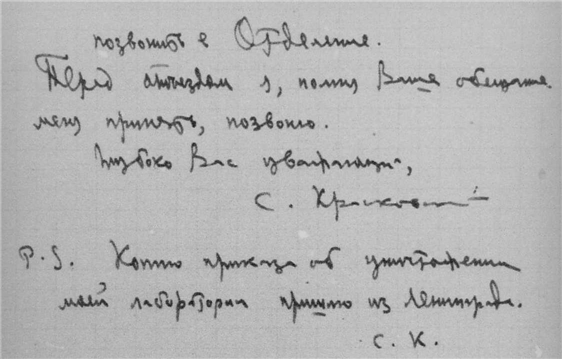 позвонить в Отделение.
Перед отъездом я, помня Ваше обещание
меня принять, позвоню.
Глубоко Вас уважающий,
С.
P.S. Копию приказа об уничтожении
моей лаборатории пришлю из Ленинграда.
С. К.